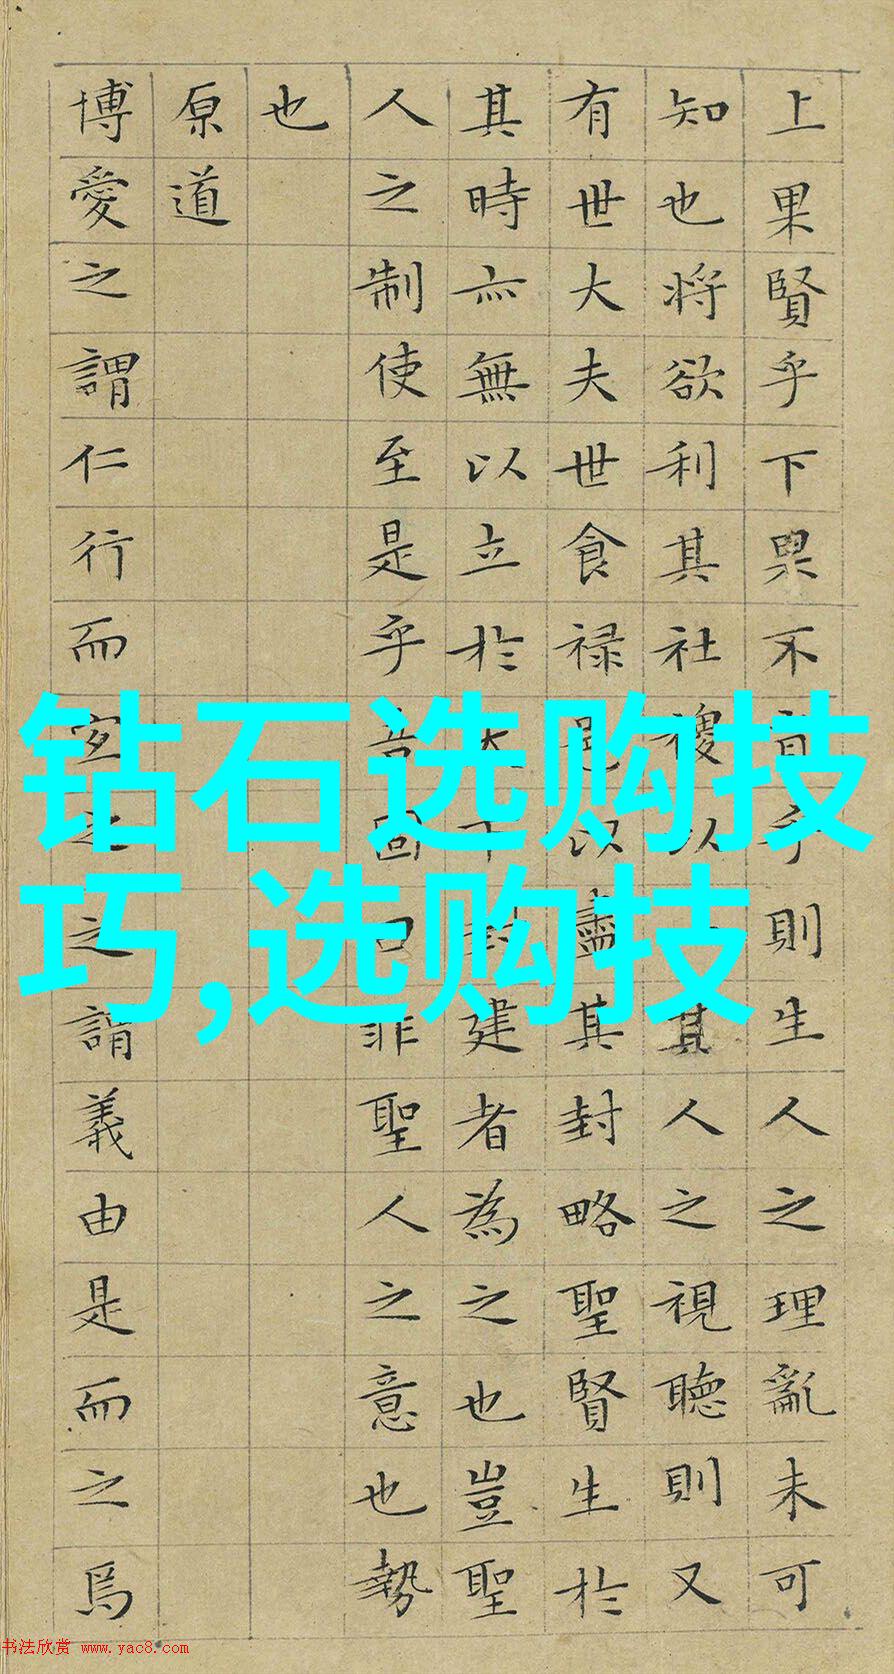 上果賢乎下果不肖乎則生人之理亂未可
知也將欲利其社稷以其人之視聽則又
有世大夫世食禄邑以盡其封略聖賢生於
其時亦無以立於天下封建者為之也豈聖
人之制使至是乎吾固曰非聖人之意也勢
也
原道
博愛之謂仁行而宜之之謂義由是而之焉
钻石选购技
巧,选购技
书法欣赏 www.yac8.com